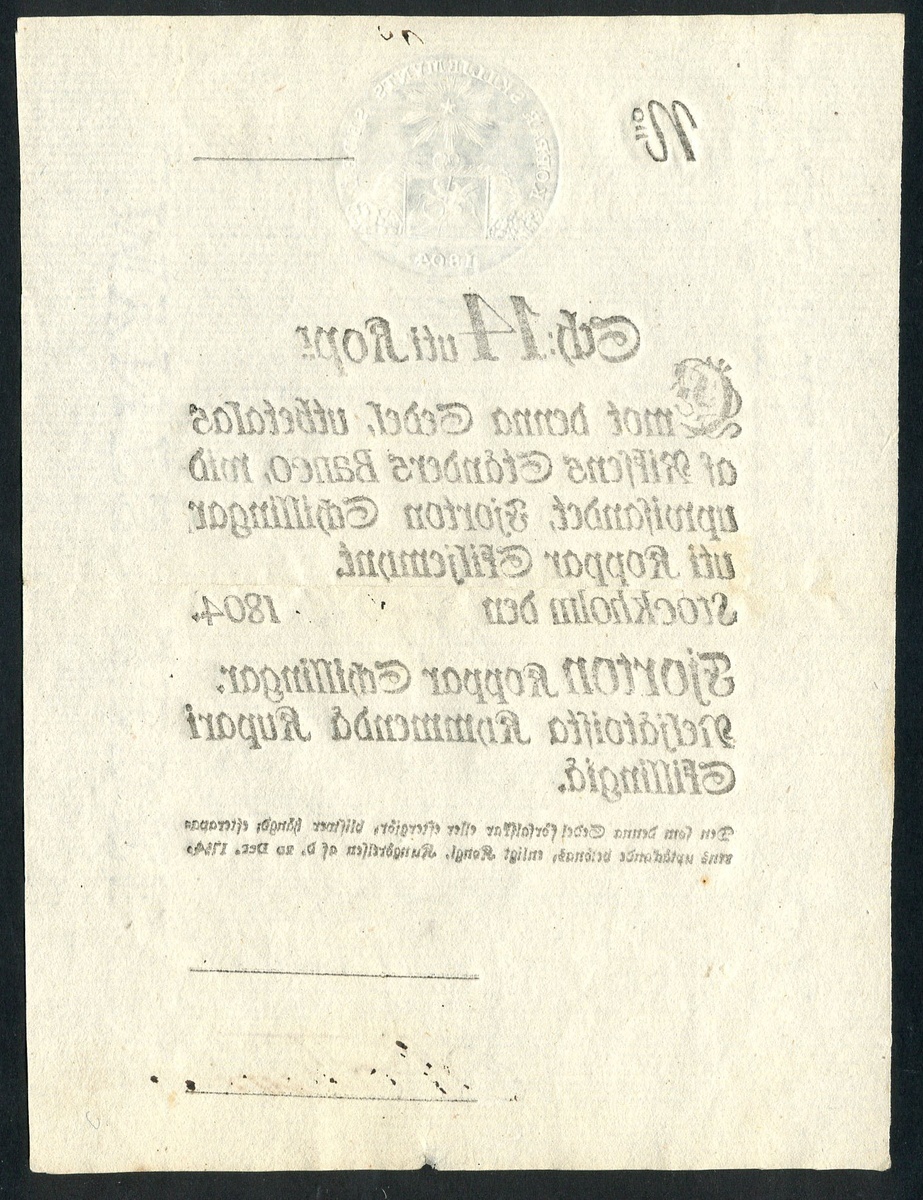 No
1804
Sch: 14 uti Kopr
Emot denna Sedel, utbetalas
af Riksens Ständers Banco, wid
upwisandet, Fjorton Schillingar
uti Koppar Skiljemynt.
Stockholm den 1804.
Fjorton Koppar Schillingar.
Neljätoista Kymmendä Kupari
Skillingiä.
Den som denna Sedel förfalskar eller eftergiör, blifwer hängd; efterapa-
rens uptäckande belönas, enligt Kongl. Kungörelsen af d. 20 Dec. 1794.